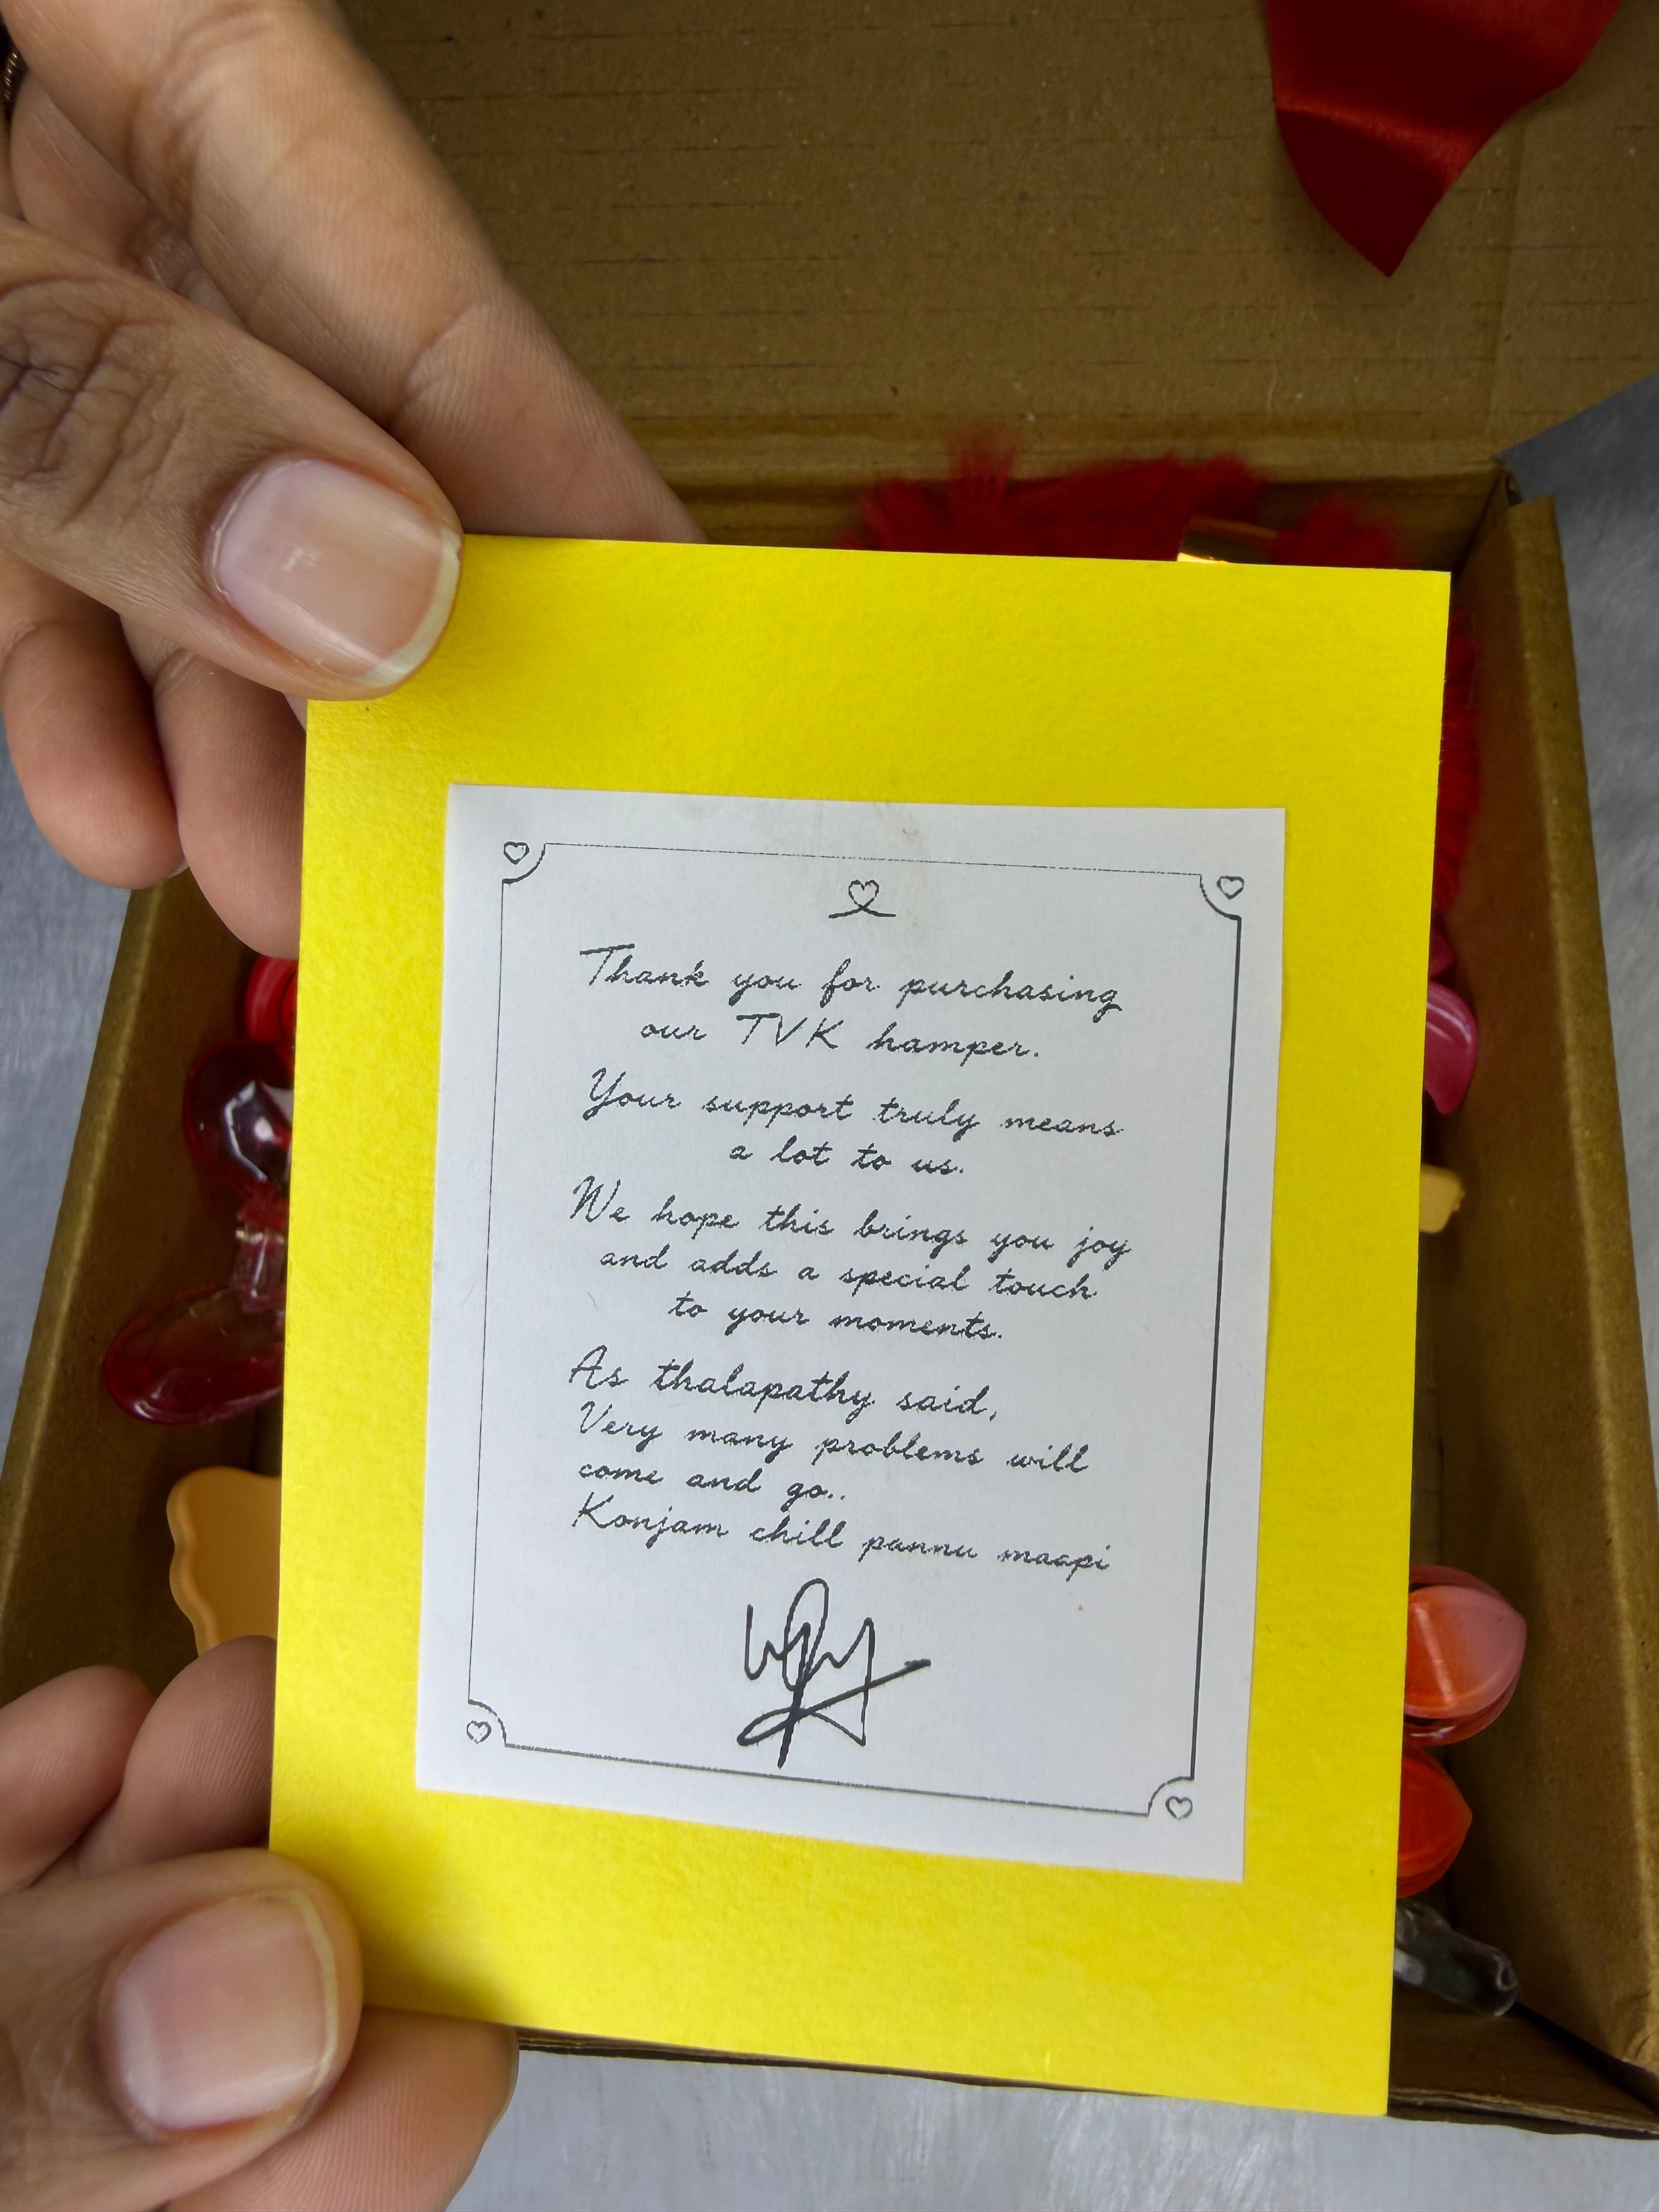 Thank you for purchasing
our TVK hamper.
Your support truly means
a lot to us.
We hope this brings you joy
and adds a special touch
to your moments.
As thalapathy said,
Very many problems will
come and go..
Konjam chill pannu maapi